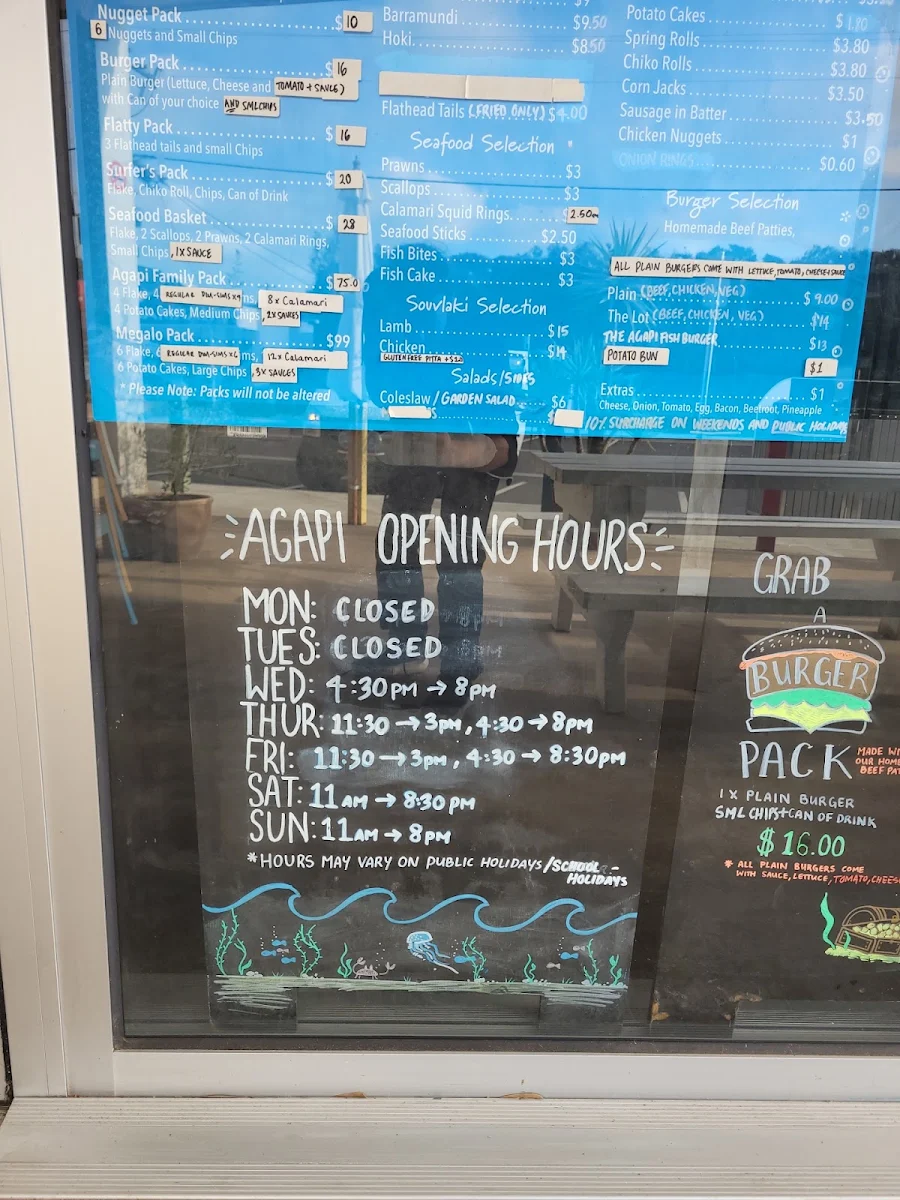 Nugget Pack ........ $10
6 Nuggets and Small Chips
Burger Pack ........ $16
Plain Burger (Lettuce, Cheese and TOMATO + SAUCE)
with Can of your choice AND SML CHIPS
Flatty Pack ........ $16
3 Flathead tails and small Chips
Surfer's Pack ........ $20
Flake, Chiko Roll, Chips, Can of Drink
Seafood Basket ........ $28
Flake, 2 Scallops, 2 Prawns, 2 Calamari Rings,
Small Chips, 1X SAUCE
Agapi Family Pack ........ $75.0
4 Flake, 4 REGULAR DIM-SIMS X4 ms, 8x Calamari
4 Potato Cakes, Medium Chips, 2X SAUCES
Megalo Pack ........ $99
6 Flake, 6 REGULAR DIM-SIMS X6 ms, 12x Calamari
6 Potato Cakes, Large Chips, 3X SAUCES
* Please Note: Packs will not be altered
Barramundi ........ $9.50
Hoki ........ $8.50
Flathead Tails (FRIED ONLY) $4.00
Seafood Selection
Prawns ........ $3
Scallops ........ $3
Calamari Squid Rings ........ 2.50
Seafood Sticks ........ $2.50
Fish Bites ........ $3
Fish Cake ........ $3
Souvlaki Selection
Lamb ........ $15
Chicken ........ $14
GLUTEN FREE PITTA +
Salads/
Coleslaw / GARDEN SALAD ........ $6
Potato Cakes ........ $1.80
Spring Rolls ........ $3.80
Chiko Rolls ........ $3.80
Corn Jacks ........ $3.50
Sausage in Batter ........ $3.50
Chicken Nuggets ........ $1
ONION RINGS ........ $0.60
Burger Selection
Homemade Beef Patties,
ALL PLAIN BURGERS COME WITH LETTUCE, TOMATO, CHEESE+SAUCE
Plain (BEEF, CHICKEN, VEG) ........ $9.00
The Lot (BEEF, CHICKEN, VEG) ........ $14
THE AGAPI FISH BURGER ........ $13
POTATO BUN $1
Extras ........ $1
Cheese, Onion, Tomato, Egg, Bacon, Beetroot, Pineapple
10% SURCHARGE ON WEEKENDS AND PUBLIC HOLIDAY
AGAPI OPENING HOURS
MON: CLOSED
TUES: CLOSED
WED: 4:30PM → 8PM
THUR: 11:30 → 3PM, 4:30 → 8PM
FRI: 11:30 → 3PM, 4:30 → 8:30PM
SAT: 11AM → 8:30PM
SUN: 11AM → 8PM
*HOURS MAY VARY ON PUBLIC HOLIDAYS/SCHOOL
HOLIDAYS
GRAB
A
BURGER
PACK
MADE WI
OUR HOME
BEEF PAT
1 X PLAIN BURGER
SML CHIPS+CAN OF DRINK
$16.00
* ALL PLAIN BURGERS COME
WITH SAUCE, LETTUCE, TOMATO, CHEES